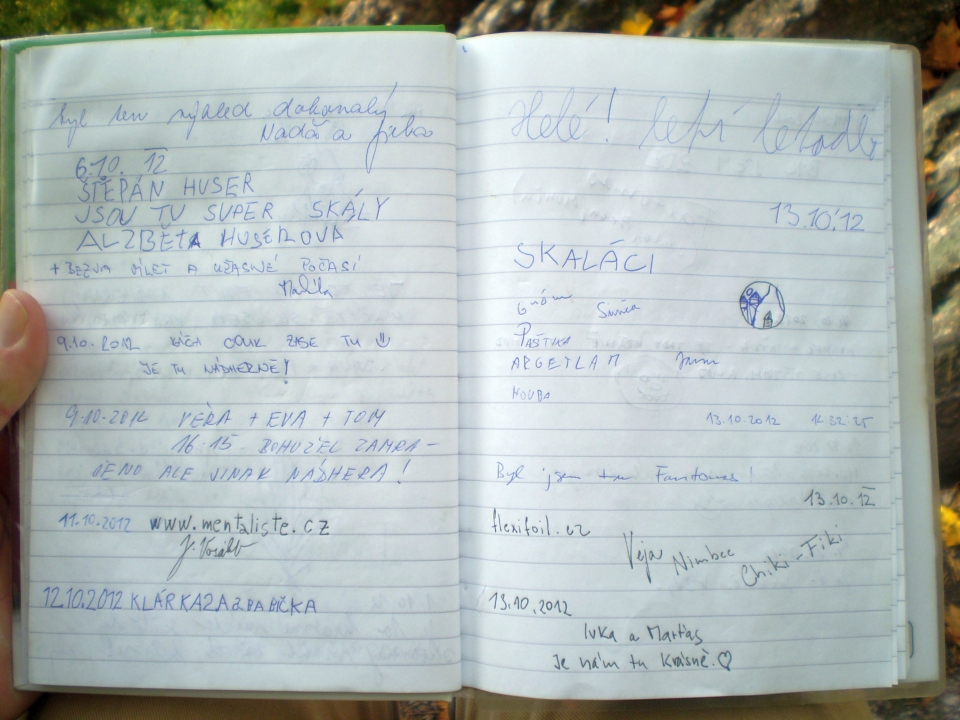 byl ten výhled dokonalý
Naďa a
6.10. 12
ŠTĚPÁN HUSER
JSOU TU SUPER SKÁLY
ALŽBĚTA HUSEROVÁ
+ BEZVA VÝLET A ÚŽASNÉ POČASÍ
9.10.2012 KÁČA ZASE TU
JE TU NÁDHERNĚ!
9.10.2012 VĚRA + EVA + TOM
16.15 BOHUŽEL ZAMRA-
ČENO ALE JINAK NÁDHERA!
11.10.2012 www.mentaliste.cz
12.10.2012 KLÁRKA
Helé! letí letadlo
13.10.'12
SKALÁCI
Gnóm Simča
PAŠTIKA
ARGETLAM
HOUBA
13.10.2012
Byl jsem tu Fantomas!
13.10.12
flexifoil.cz
Véja Nimbec Chiki-Fiki
13.10.2012
Ivka a Marťas
Je nám tu krásně.♡